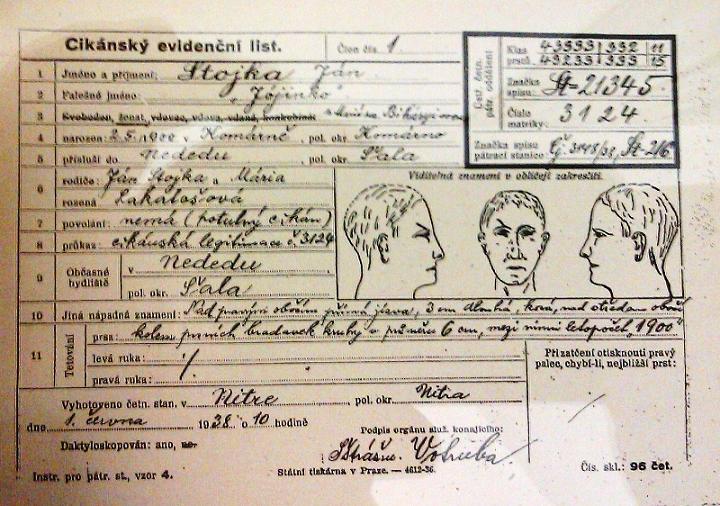 Cikánský evidenční list.
Člen čís. 1
Ústř. četn. pátr. oddělení
Klas prstů. 43333 | 332 | 11
43233 | 333 | 15
Značka spisu: Št-21345.
Číslo matriky: 3124
Značka spisu pátrací stanice: Čj. 3148/38, Št-216
1 Jméno a příjmení: Stojka Ján
2 Falešné jméno: „Jójinko"
3 Svoboden, ženat, vdovec, vdova, vdaná, konkubinát
4 narozen: 2.5.1900 v Komárně, pol. okr. Komárno
5 přísluší do Nededu pol. okr. Šala
6 rodiče: Ján Stojka a Mária
rozená Lakatošová
7 povolání: nemá (potulný cikán)
8 průkaz: cikánská legitimace č. 3124
9 Občasné bydliště v Nededu
pol. okr. Šala
Viditelná znamení v obličeji zakresliti.
10 Jiná nápadná znamení: Nad pravým obočím 3 cm dlouhá, nad středem
11 Tetování
prsa: kolem prsních bradavek kruhy v průměru 6 cm, mezi nimi letopočet „1900"
levá ruka: /.
pravá ruka:
Při zatčení otisknouti pravý
palec, chybí-li, nejbližší prst:
Vyhotoveno četn. stan. v Nitre pol. okr. Nitra
dne 1. června 1938 o 10 hodině
Podpis orgánu služ. konajícího:
Daktyloskopován: ano, ne.
Strážm. Votruba
Instr. pro pátr. st., vzor 4.
Státní tiskárna v Praze. — 4612-36.
Čís. skl.: 96 čet.